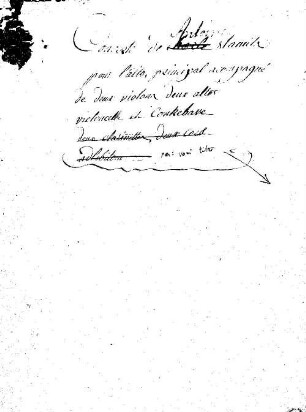 Antoine
Concerto de Stamitz
pour l'alto, principal acompagné
de deux violons deux altos
violoncelle et Contrebasse
deux clarinettes, deux cors
ad libitum